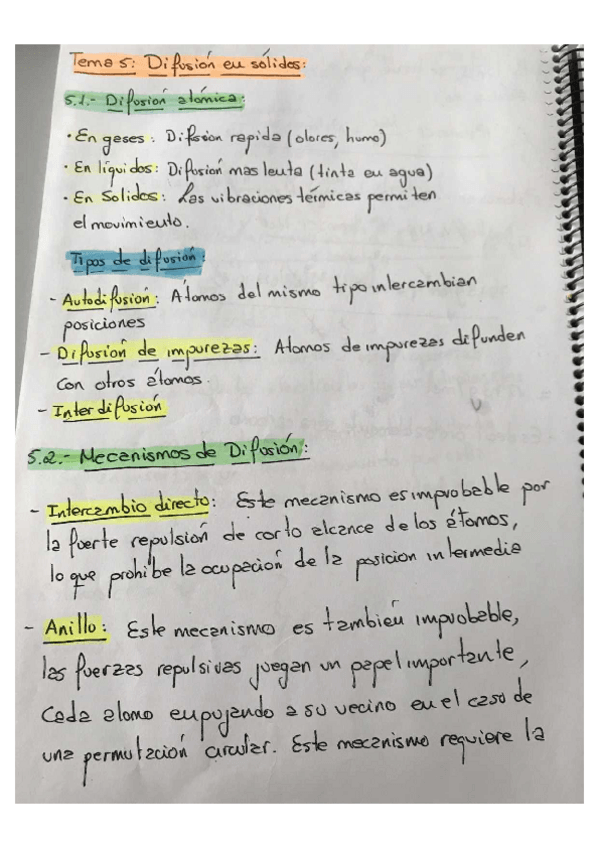 Tema 5: Difusión en sólidos:
5.1.- Difusión atómica:
· En gases: Difusion rapida (olores, humo)
· En líquidos: Difusión mas lenta (tinta en agua)
· En Solidos: Las vibraciones térmicas permiten
el movimiento.
Tipos de difusión:
- Autodifusión: Átomos del mismo tipo intercambian
posiciones
- Difusión de impurezas: Atomos de impurezas difunden
con otros átomos.
- Interdifusión
5.2.- Mecanismos de Difusión:
- Intercambio directo: Este mecanismo es improbable por
la fuerte repulsión de corto alcance de los átomos,
lo que prohibe la ocupación de la posicion intermedia
- Anillo: Este mecanismo es también improbable,
las fuerzas repulsivas juegan un papel importante,
Cada atomo empujando a su vecino en el caso de
una permutación circular. Este mecanismo requiere la